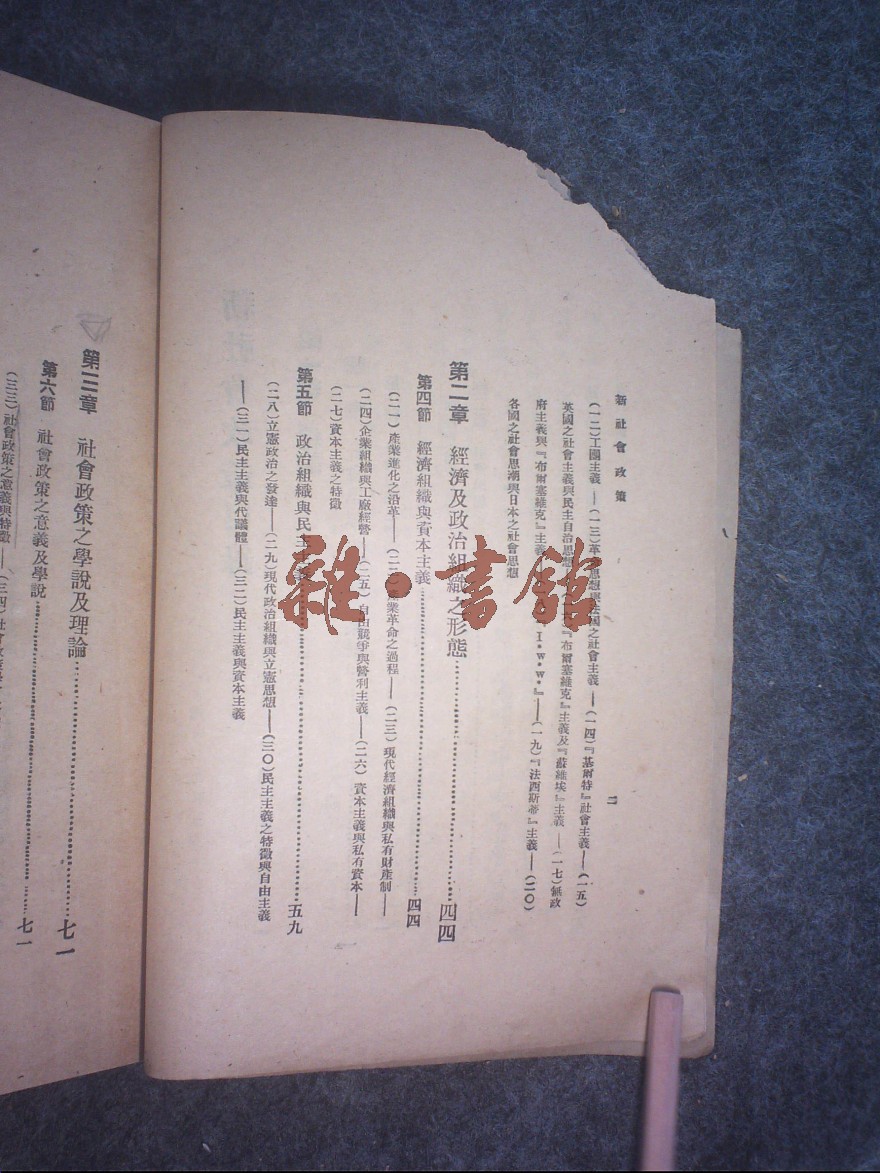 新社會政策
二
(一二)工團主義——(一三)革 思想與法國之社會主義——(一四)『基爾特』社會主義——(一五)
英國之社會主義與民主自治思想 『布爾塞維克』主義及『蘇維埃』主義——(一七)無政
府主義與『布爾塞維克』主義 I．W．W．』——(一九)『法西斯蒂』主義——(二〇)
各國之社會思潮與日本之社會思想
第二章 經濟及政治組織之形態……四四
第四節 經濟組織與資本主義……四四
(二一)產業進化之沿革——(二二) 業革命之過程——(二三)現代經濟組織與私有財產制——
(二四)企業組織與工廠經營——(二五)自由競爭與營利主義——(二六)資本主義與私有資本——
(二七)資本主義之特徵
第五節 政治組織與民主主 ……五九
(二八)立憲政治之發達——(二九)現代政治組織與立憲思想——(三〇)民主主義之特徵與自由主義
——(三一)民主主義與代議體——(三二)民主主義與資本主義
第三章 社會政策之學說及理論……七一
第六節 社會政策之意義及學說……七一
(三三)社會政策之意義與特徵——(三四)社會政策
雜·書館